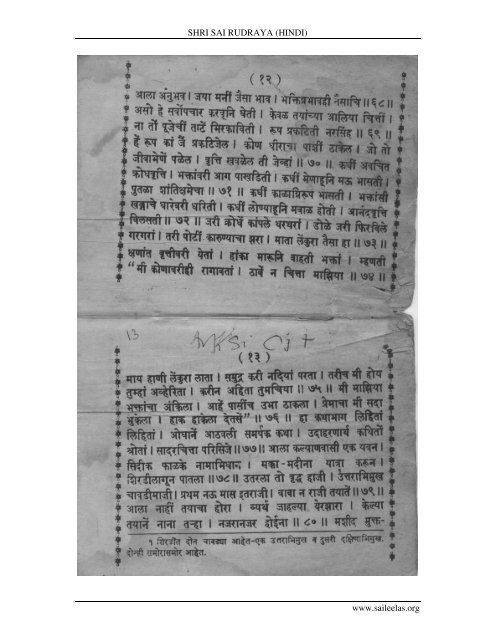 SHRI SAI RUDRAYA (HINDI)
(१२)
आला अनुभव। जया मनीं जैसा भाव। भक्तिप्रभावही तैसाचि॥६८॥
असो हे सर्वोपचार करवूनि घेती। केवळ तयांच्या आलिया चित्तीं।
ना तों पूजेचीं ताटें भिरकाविती। रूप प्रकटिती नरसिंह॥ ६९॥
हें रूप कां जैं प्रकटिजेल। कोण धीराचा पाशीं ठाकेल। जो तो
जीवाभेणें पळेल। वृत्ति खवळेल ती जेव्हां॥ ७०॥ कधीं अवचित
क्रोधवृत्ति। भक्तांवरी आग पाखडिती। कधीं मेणाहूनि मऊ भासती।
पुतळा शांतिक्षमेचा॥ ७१॥ कधीं काळाग्निरूप भासती। भक्तांसी
खड्गाचे धारेवरी धरिती। कधीं लोण्याहूनि मवाळ होती। आनंदवृत्ति
विलसती॥ ७२॥ जरी क्रोधें कांपले थरथरां। डोळे जरी फिरविले
गरगरां। तरी पोटीं कारुण्याचा झरा। माता लेंकुरा तैसा हा॥ ७३॥
क्षणांत वृत्तीवरी येतां। हांका मारूनि बाहती भक्तां। म्हणती
"मी कोणावरीही रागावतां। ठावें न चित्ता माझिया॥ ७४॥
13
(१३)
माय हाणी लेंकुरा लाता। समुद्र करी नदियां परता। तरीच मी होय
तुम्हां अव्हेरिता। करीन अहिता तुमचिया॥ ७५॥ मी माझिया
भक्तांचा अंकिला। आहें पासींच उभा ठाकला। प्रेमाचा मी सदा
भुकेला। हाक हाकेला देतसें"॥ ७६॥ हा कथाभाग लिहितां
लिहितां। ओघानें आठवली समर्पक कथा। उदाहरणार्थ कथितों
श्रोतां। सादरचित्ता परिसिजे॥७७॥ आला कल्याणवासी एक यवन।
सिदीक फाळके नामाभिधान। मक्का-मदीना यात्रा करून।
शिरडीलागून पातला॥७८॥ उतरला तो वृद्ध हाजी। उत्तराभिमुख
चावडीमाजी। प्रथम नऊ मास इतराजी। बाबा न राजी तयातें॥७९॥
आला नाहीं तयाचा होरा। व्यर्थ जाहल्या येरझारा। केल्या
तयानें नाना तऱ्हा। नजरानजर होईना॥ ८०॥ मशीद मुक्त-
१ शिरडींत दोन चावड्या आहेत-एक उत्तराभिमुख व दुसरी दक्षिणाभिमुख.
दोन्ही समोरासमोर आहेत.
www.saileelas.org